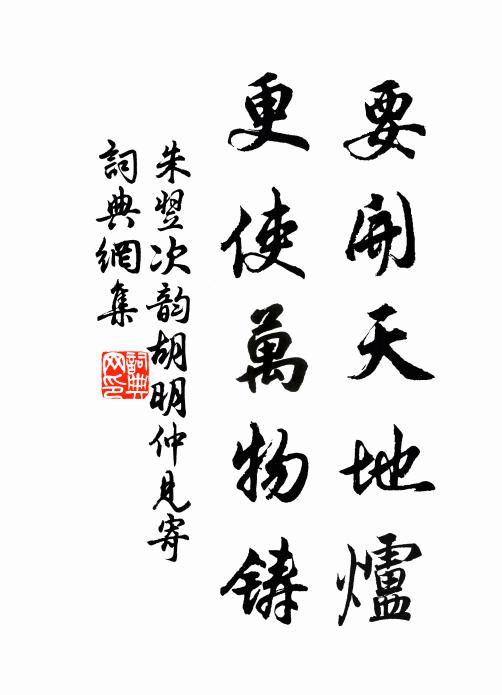 要開天地爐
更使萬物鑄
朱翌次韵胡明仲見寄
詞典網集
詞典網印